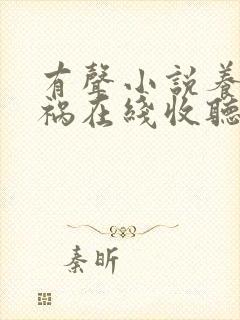 有聲小説養
禍在綫收聽
秦昕